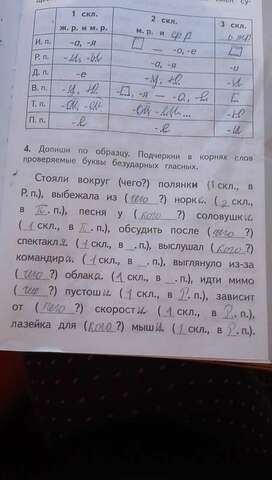 1 скл. 2 скл. 3 скл.
ж. р. и м. р. м. р. и ср. р. ж. р.
И. п. -а, -я □ — -о, -е □
Р. п. -ы, -и -а, -я -и
Д. п. -е -у, -ю -и
В. п. -у, -ю □, -я — -о, -е □
Т. п.
П. п. -е -е -и
4. Допиши по образцу. Подчеркни в корнях слов
проверяемые буквы безударных гласных.
Стояли вокруг (чего?) полянки (1 скл., в
Р. п.), выбежала из (чего ?) норки (2 скл.,
в п.), песня у (кого ?) соловушки
(1 скл., в п.), обсудить после (чего ?)
спектакля (1 скл., в _. п.), выслушал (кого ?)
командира (1 скл., в _. п.), выглянуло из-за
(чего ?) облака (1 скл., в _. п.), идти мимо
( ?) пустоши (1 скл., в Р. п.), зависит
от (чего ?) скорости (1 скл., в Р. п.),
лазейка для (кого ?) мыши (1 скл., в Р. п.).